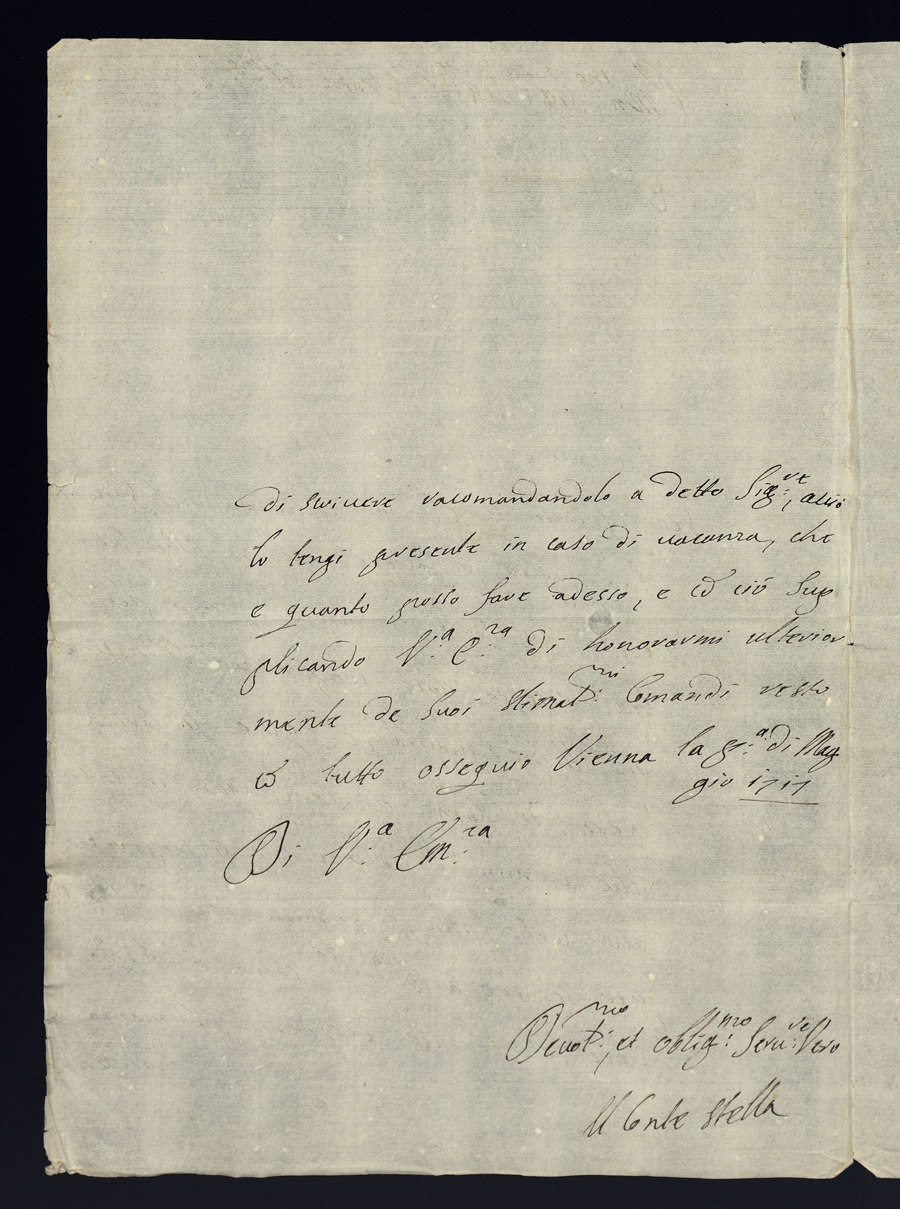 di scrivere racomandandolo a detto Sig:re, acciò
lo tengi presente in caso di vacanza, che
e quanto posso fare adesso, e cõ ciò Sup
plicando V:a E:za di honorarmi ulterior
mente de Suoi stimat:mi Comandi resto
cõ tutto ossequio Vienna la p:a di Mag
gio 1717
Di V:a Em:za
Devot:mo, et oblig:mo Serv:re Vero
Il Conte Stella